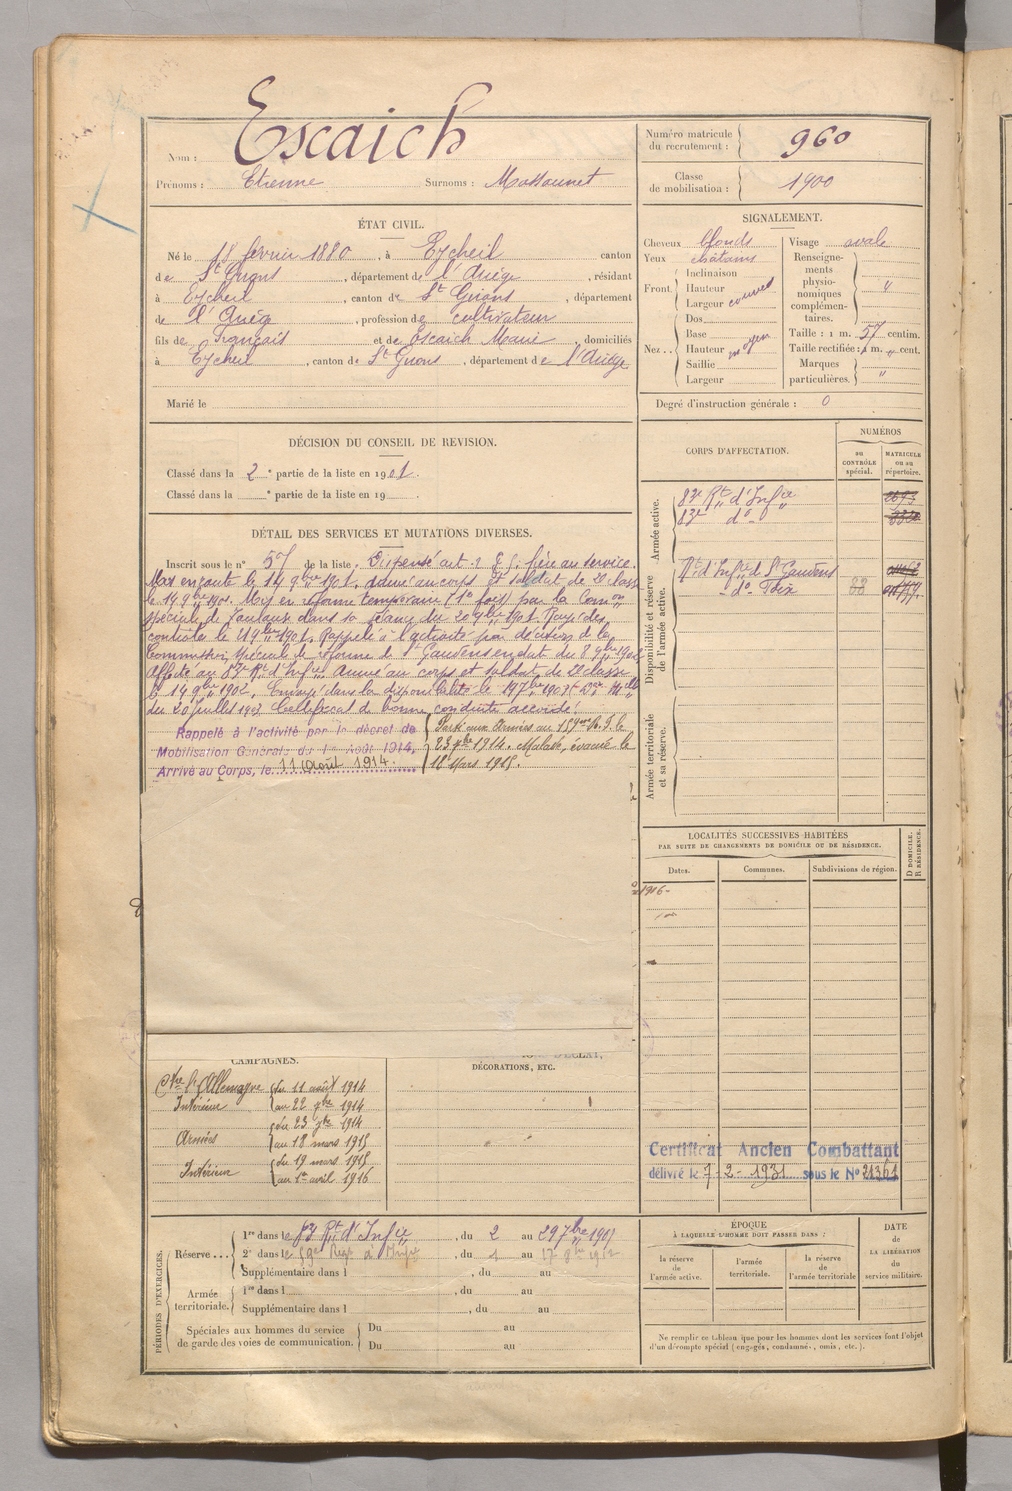 Nom : Escaich
Prénoms : Etienne Surnoms : Massounet
Numéro matricule du recrutement : 960
Classe de mobilisation : 1900
ÉTAT CIVIL.
Né le 18 février 1880, à Eycheil canton
de St Girons, département de l'Ariège, résidant
à Eycheil, canton de St Girons, département
de l'Ariège, profession de cultivateur
fils de François et de Escaich Marie, domiciliés
à Eycheil, canton de St Girons, département de l'Ariège
Marié le
SIGNALEMENT.
Cheveux blonds
Yeux châtains
Front. Inclinaison
Hauteur
Largeur couvert
Nez.. Dos
Base
Hauteur moyen
Saillie
Largeur
Visage ovale
Renseignements physionomiques complémentaires. "
Taille : 1 m. 57 centim.
Taille rectifiée : 1 m. " cent.
Marques particulières. "
Degré d'instruction générale : 0
DÉCISION DU CONSEIL DE REVISION.
Classé dans la 2e partie de la liste en 1901.
Classé dans la e partie de la liste en 19
CORPS D'AFFECTATION.
NUMÉROS
au CONTRÔLE spécial.
MATRICULE ou au répertoire.
Armée active.
83e Rt d'Infie
83e do
Disponibilité et réserve de l'armée active.
Rt d'Infie de St Gaudens
do Foix 88
Armée territoriale et sa réserve.
DÉTAIL DES SERVICES ET MUTATIONS DIVERSES.
Inscrit sous le n° 57 de la liste. Dispensé art. 21 frère au service.
Mis en route le 14 9bre 1901, arrivé au corps et soldat de 2e classe
le 14 9bre 1901. Mis en réforme temporaire (1e fois) par la Comon
spéciale de Toulouse dans sa séance du 20 9bre 1901. Rayé des
contrôles le 21 9bre 1901. Rappelé à l'activité par décision de la
Commission spéciale de réforme de St Gaudens en date du 8 9bre 1902
Affecté au 83e Rt d'Infie Arrivé au corps et soldat de 2e classe
le 14 9bre 1902. Envoyé dans la disponibilité le 19 7bre 1903
du 20 Juillet 1903 Certificat de bonne conduite accordé.
Rappelé à l'activité par le décret de
Mobilisation Générale du 1er Août 1914,
Arrivé au Corps, le 11 Août 1914.
Parti aux Armées au 159me R. I. le
23 7bre 1914. Malade, évacué le
18 Mars 1915.
LOCALITÉS SUCCESSIVES HABITÉES
PAR SUITE DE CHANGEMENTS DE DOMICILE OU DE RÉSIDENCE.
Dates. Communes. Subdivisions de région. D DOMICILE. R RÉSIDENCE.
1916-
CAMPAGNES.
DÉCORATIONS, ETC.
Ctre l'Allemagne
Intérieur du 11 août 1914
au 22 7bre 1914
Armées du 23 7bre 1914
au 18 mars 1915
Intérieur du 19 mars 1915
au 1er avril 1916
Certificat Ancien Combattant
délivré le 7-2-1931 sous le N° 21361
PÉRIODES D'EXERCICES.
Réserve... 1re dans le 83 Rt d'Infie, du 2 au 29 7bre 1907
2e dans le 59e Regt d'Infie, du 1 au 17 8bre 1912
Supplémentaire dans l , du au
Armée territoriale. 1re dans l , du au
Supplémentaire dans l , du au
Spéciales aux hommes du service de garde des voies de communication. Du au
Du au
ÉPOQUE
À LAQUELLE L'HOMME DOIT PASSER DANS :
la réserve de l'armée active.
l'armée territoriale.
la réserve de l'armée territoriale
DATE DE LA LIBÉRATION du service militaire.
Ne remplir ce tableau que pour les hommes dont les services font l'objet
d'un décompte spécial (engagés, condamnés, omis, etc.).